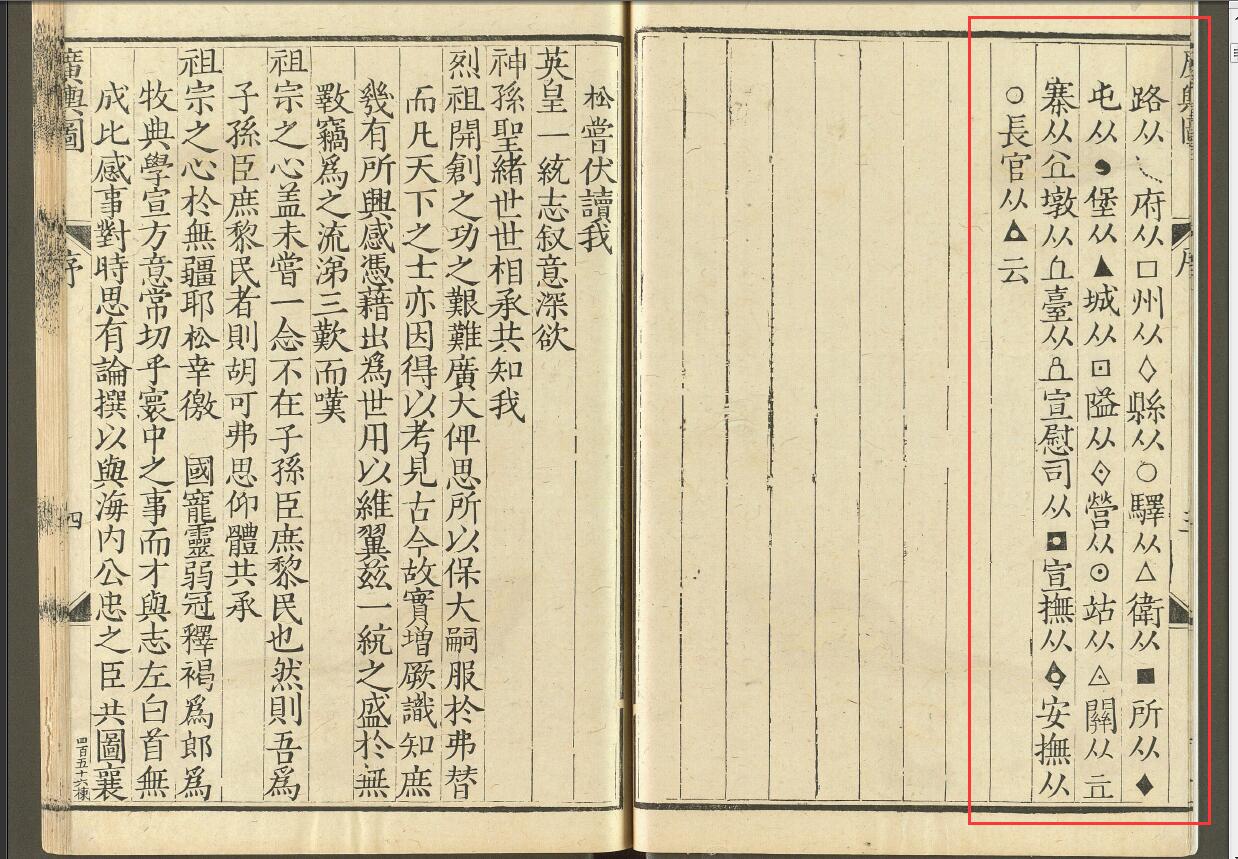 廣輿圖
序
三
路从 府从□州从◇縣从○驛从△衛从■所从◆
屯从 堡从▲城从⊡隘从◈營从⊙站从◬關从
寨从 墩从 臺从 宣慰司从 宣撫从 安撫从
○長官从 云
松嘗伏讀我
英皇一統志叙意深欲
神孫聖緒世世相承共知我
烈祖開創之功之艱難廣大俾思所以保大嗣服於弗替
而凡天下之士亦因得以考見古今故實增厥識知庶
幾有所興感憑藉出為世用以維翼茲一統之盛於無
斁竊為之流涕三歎而嘆
祖宗之心盖未嘗一念不在子孫臣庶黎民也然則吾為
子孫臣庶黎民者則胡可弗思仰體共承
祖宗之心於無疆耶松幸徼 國寵靈弱冠釋褐為郎為
牧典學宣方意常切乎寰中之事而才與志左白首無
成比感事對時思有論撰以與海内公忠之臣共圖襄
廣輿圖
序
四
四百五十六棟